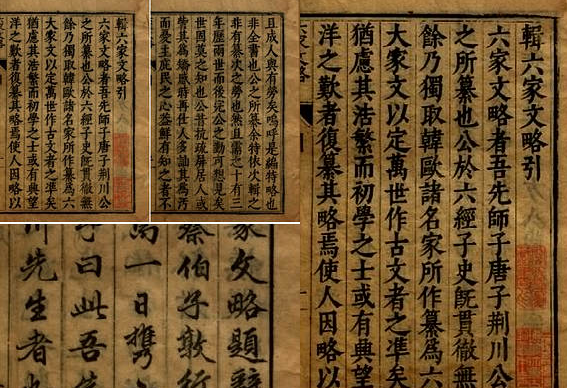 輯六家文略引
六家文略者吾先師子唐子荆川公
之所纂也公於六經子史旣貫徹無
餘乃獨取韓歐諸名家所作纂爲六
大家文以定萬世作古文者之準矣
猶慮其浩繁而初學之士或有典望
洋之歎者復纂其略焉使人因略以
且成人與有勞矣嗚呼是編特略也
非全書也公之所纂余特依次輯之
非有纂次之勞也然且需之十有三
年歷兩世而後完公之勤可想見矣
世固莫之知也公昔抗疏屏居人或
訾其爲矯時再仕人多訕其爲汚
而愛主庇民之心蓋鮮有知之者不
輯六家文略引
六家文略者吾先師子唐子荆川公
之所纂也公於六經子史旣貫徹無
餘乃獨取韓歐諸名家所作纂爲六
大家文以定萬世作古文者之準矣
猶慮其浩繁而初學之士或有典望
洋之歎者復纂其略焉使人因略以
家文略題辭
蔡伯子敦行
萬一日携
子曰此吾
川先生者